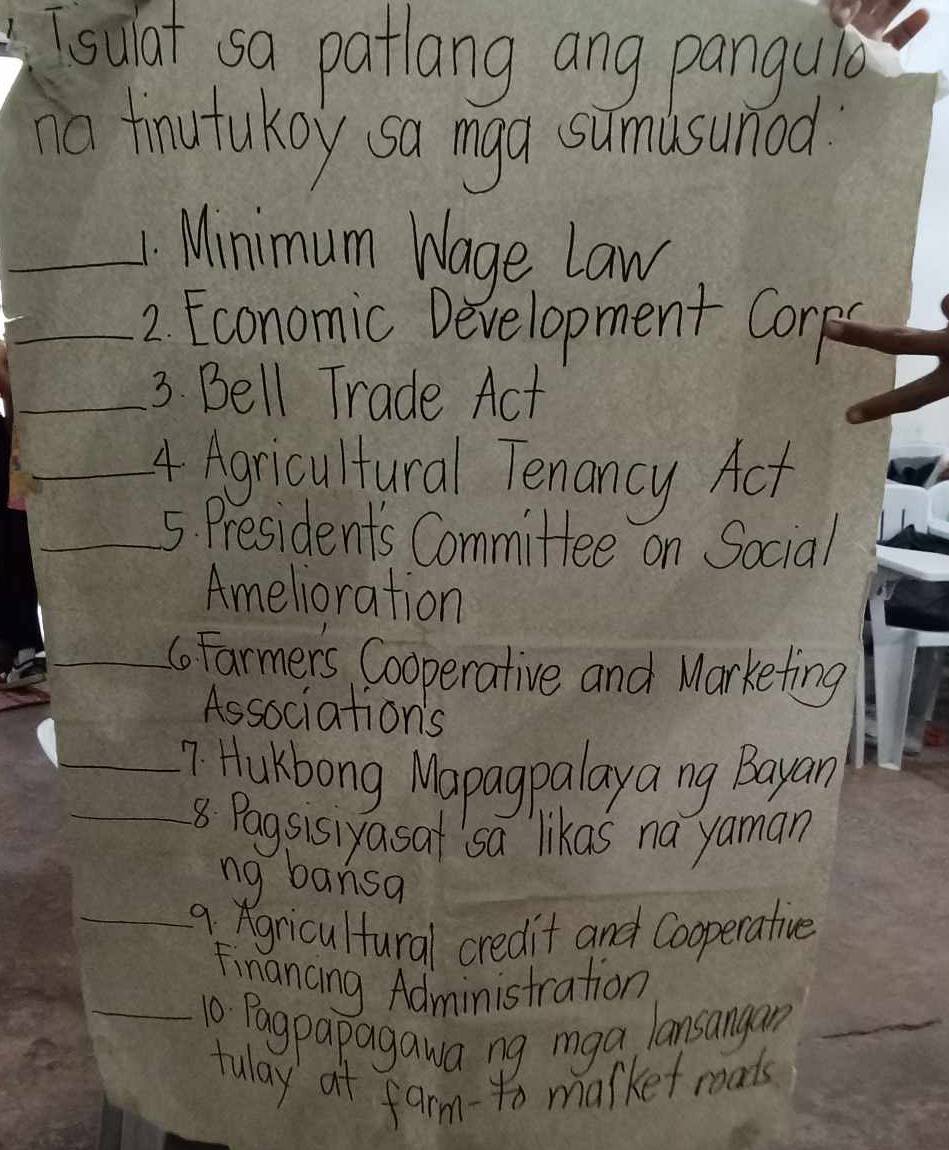 Isulat sa patlang ang pangulo
na tinutukoy sa mga sumusunod:
_____1. Minimum Wage Law
_____2. Economic Development Corps
_____3. Bell Trade Act
_____4. Agricultural Tenancy Act
_____5. President's Committee on Social
Amelioration
_____6. Farmer's Cooperative and Marketing
Association's
_____7. Hukbong Mapagpalaya ng Bayan
_____8. Pagsisiyasat sa likas na yaman
ng bansa
_____9. Agricultural credit and Cooperative
Financing Administration
_____10. Pagpapagawa ng mga lansangan
tulay at farm-to market roads